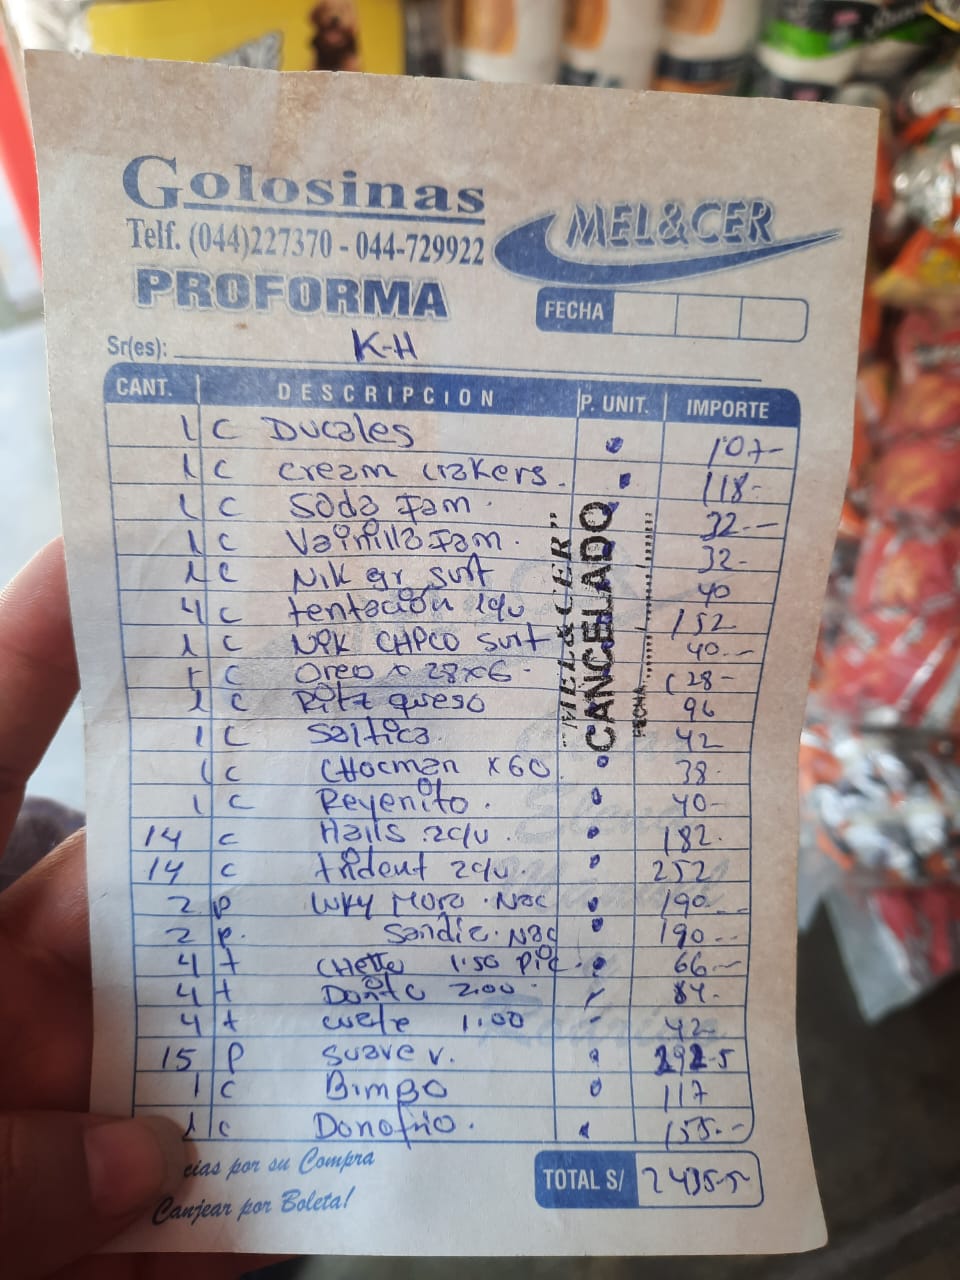 Golosinas
Telf. (044)227370 - 044-729922
MEL&CER
PROFORMA
FECHA
Sr(es): K-H
CANT. DESCRIPCION P. UNIT. IMPORTE
1 C Ducales 107-
1 C Cream Crakers. 118-
1 C Soda Fam. 32--
1 C Vainilla Fam. 32-
1 C Nik gr surt 40
4 C tentación 152
1 C Nik CHOCO surt 40--
C Oreo x 28x6- 128-
1 C Ritz queso 96
1 C Saltica 42
1 C CHocman x60 38-
1 C Reyenito. 40-
14 C Halls 182-
14 C trident 252
2 P Mora. Nac 190--
2 P. Sandia. Nac 190--
4 t 1.50 Pic. 66--
4 t 2.00 84-
4 t 1.00 42-
15 P Suave v. 292-5
1 C BimBo 117
1 C Donofrio. 155--
"MEL&CER"
CANCELADO
FECHA
cias por su Compra
Canjear por Boleta!
TOTAL S/ 2435-5